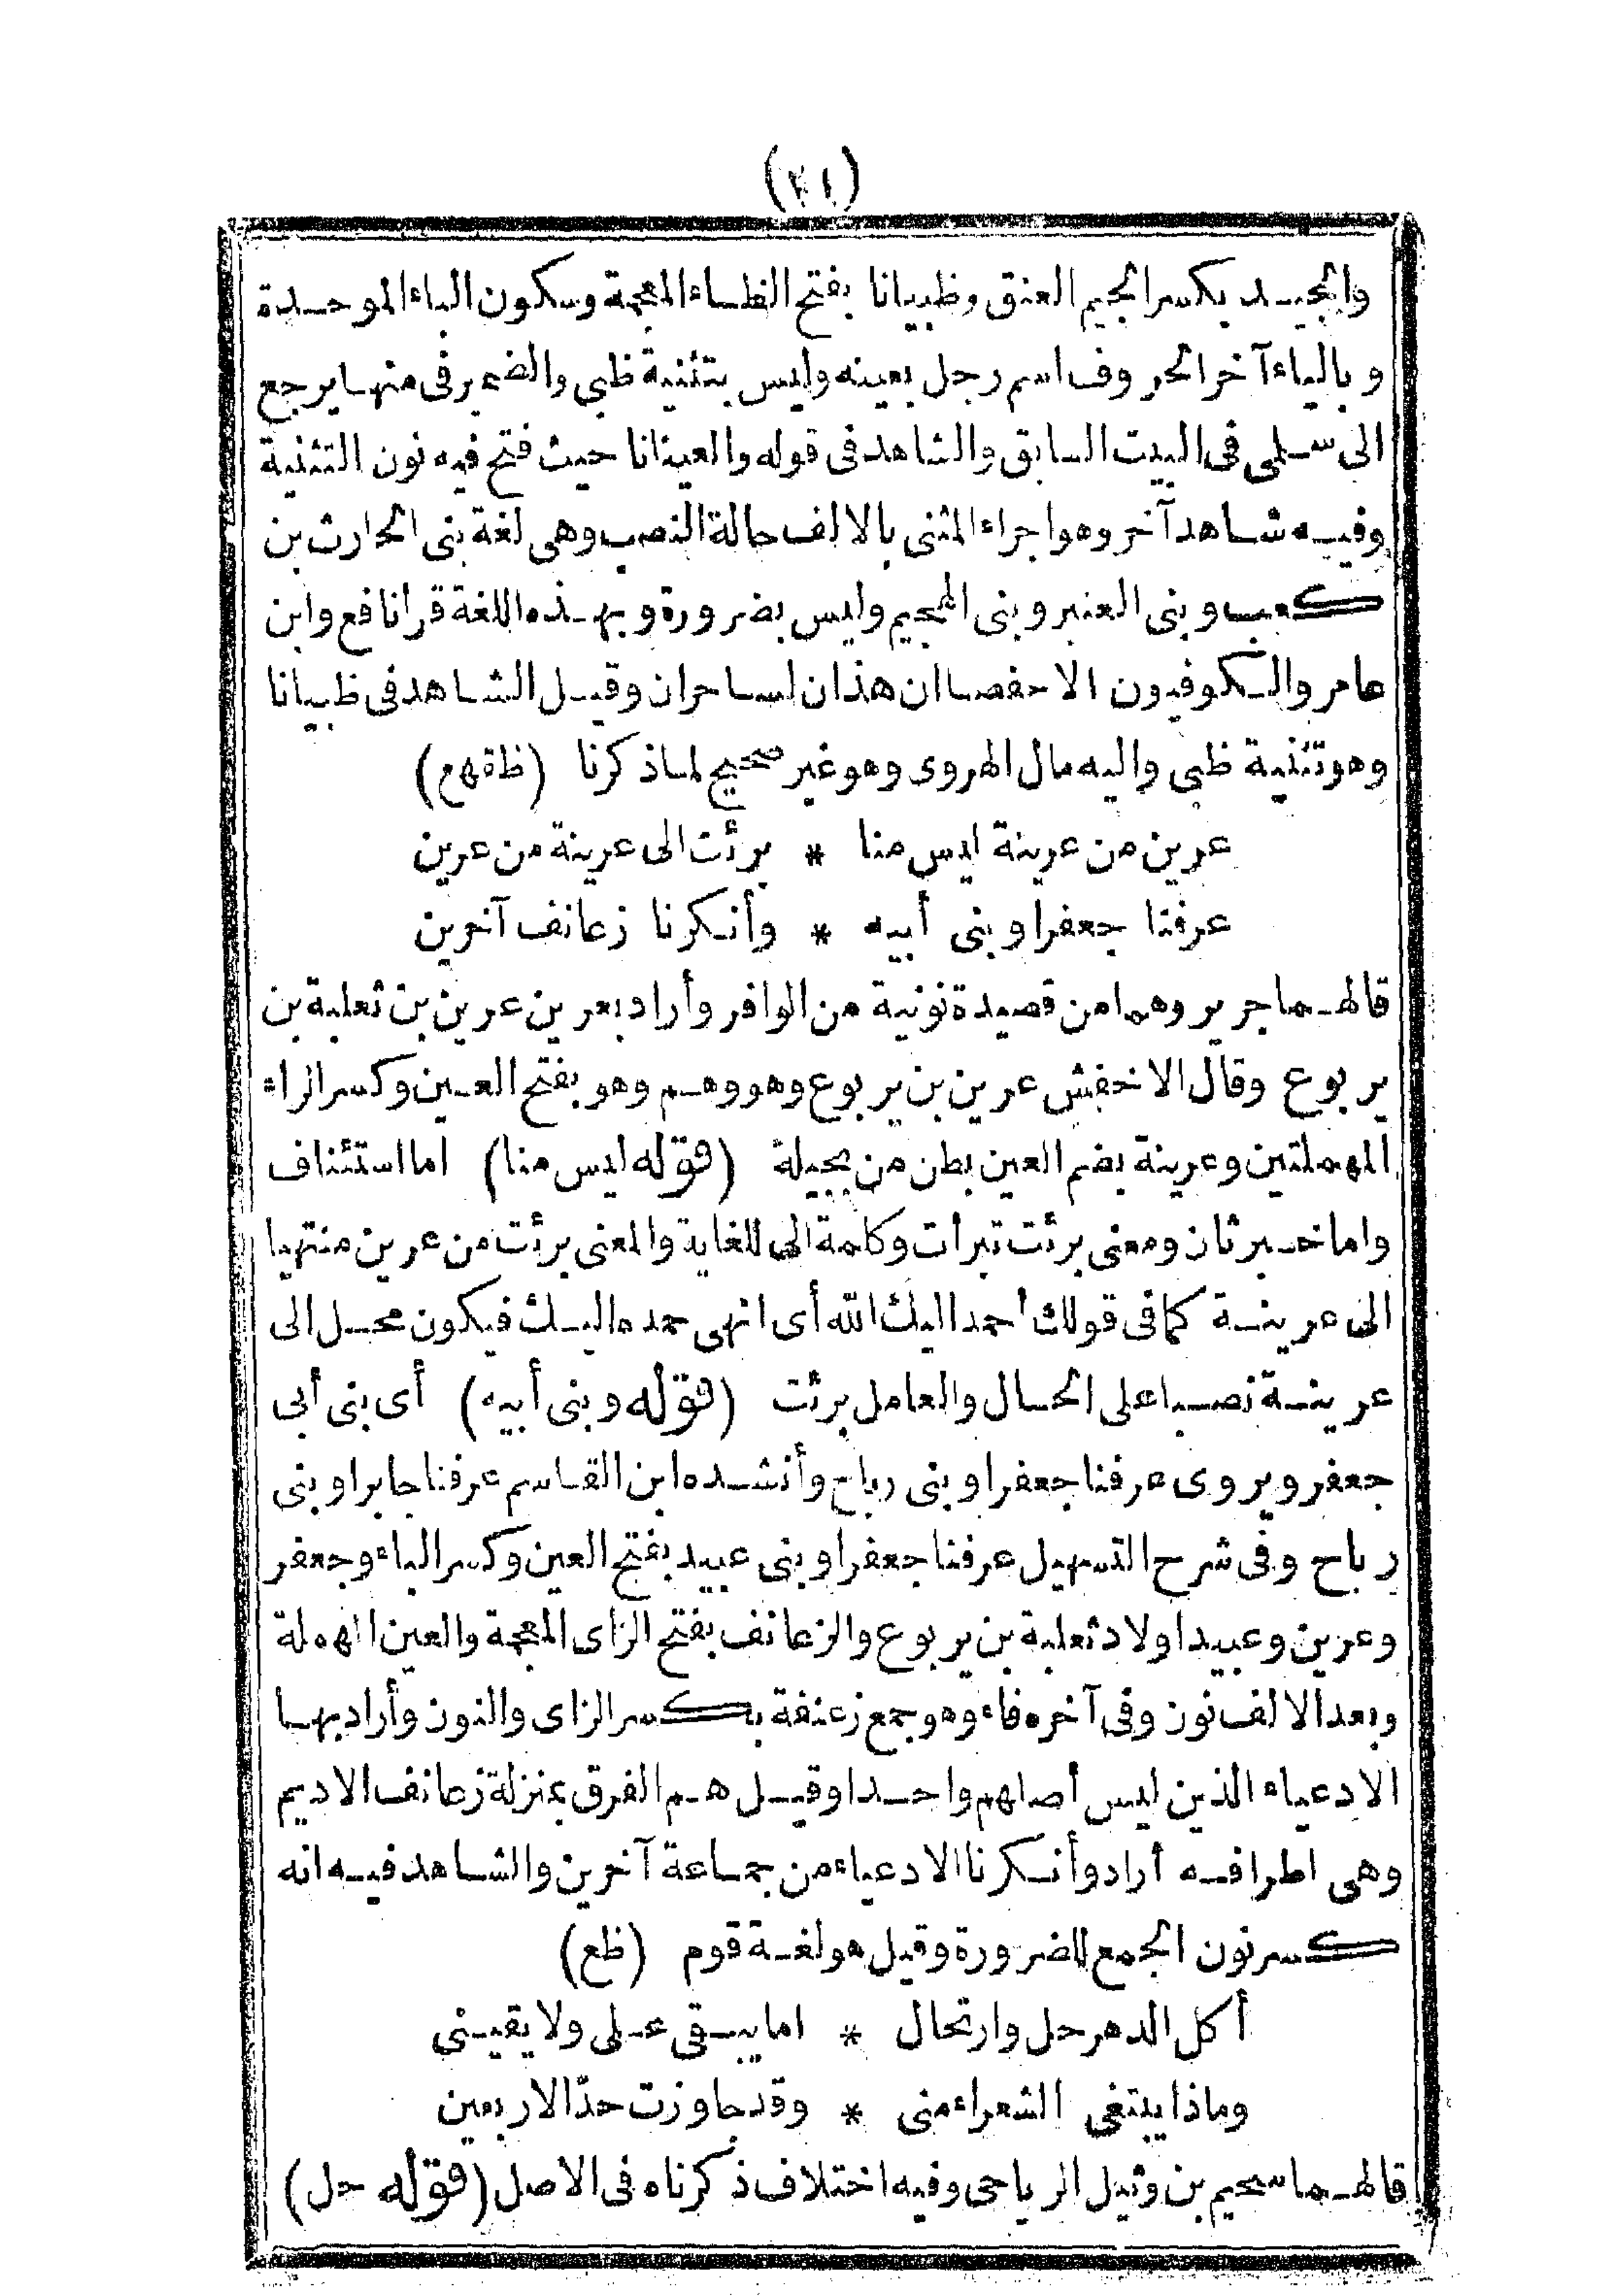 (٢١)
والجيـد بكسر الجيم العنق وظبيانا بفتح الظاء المعجمة وسكون الباء الموحدة
وبالياء آخر الحروف اسم رجل بعينه وليس بتثنية ظبى والضمير فى منها يرجع
الى سلمى فى البيت السابق والشاهد فى قوله والعينانا حيث فتح فيه نون التثنية
وفيه شاهد آخر وهو اجراء المثنى بالالف حالة النصب وهى لغة بنى الحارث بن
كعب وبنى العنبر وبنى الهجيم وليس بضرورة وبهذه اللغة قرا نافع وابن
عامر والكوفيون الا حفصا ان هذان لساحران وقيل الشاهد فى ظبيانا
وهو تثنية ظبى واليه مال الهروى وهو غير صحيح لما ذكرنا (ظقهع)
عرين من عرينة ليس منا * برئت الى عرينة من عرين
عرفنا جعفرا وبنى أبيه * وأنكرنا زعانف آخرين
قالهما جرير وهما من قصيدة نونية من الوافر وأراد بعرين عرين بن ثعلبة بن
يربوع وقال الاخفش عرين بن يربوع وهو وهم وهو بفتح العين وكسر الراء
المهملتين وعرينة بضم العين بطن من بجيلة (قوله ليس منا) اما استئناف
واما خبر ثان ومعنى برئت تبرأت وكلمة الى للغاية والمعنى برئت من عرين منتهيا
الى عرينة كما فى قولك أحمد اليك الله أى انهى حمده اليك فيكون محل الى
عرينة نصبا على الحال والعامل برئت (قوله وبنى أبيه) أى بنى أبى
جعفر ويروى عرفنا جعفرا وبنى رياح وأنشده ابن القاسم عرفنا جابرا وبنى
رباح وفى شرح التسهيل عرفنا جعفرا وبنى عبيد بفتح العين وكسر الباء وجعفر
وعرين وعبيد اولاد ثعلبة بن يربوع والزعانف بفتح الزاى المعجمة والعين المهملة
وبعد الالف نون وفى آخره فاء وهو جمع زعنفة بكسر الزاى والنون وأراد بها
الادعياء الذين ليس أصلهم واحدا وقيل هم الفرق بمنزلة زعانف الاديم
وهى اطرافه أراد وأنكرنا الادعياء من جماعة آخرين والشاهد فيه انه
كسر نون الجمع للضرورة وقيل هو لغة قوم (ظع)
أكل الدهر حل وارتحال * اما يبقى على ولا يقينى
وماذا يبتغى الشعراء منى * وقد جاوزت حدّ الاربعين
قالهما سحيم بن وثيل الرياحى وفيه اختلاف ذكرناه فى الاصل (قوله حل)